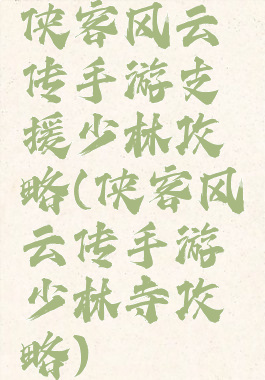 侠客风云
传手游支
援少林攻
略(侠客风
云传手游
少林寺攻
略)